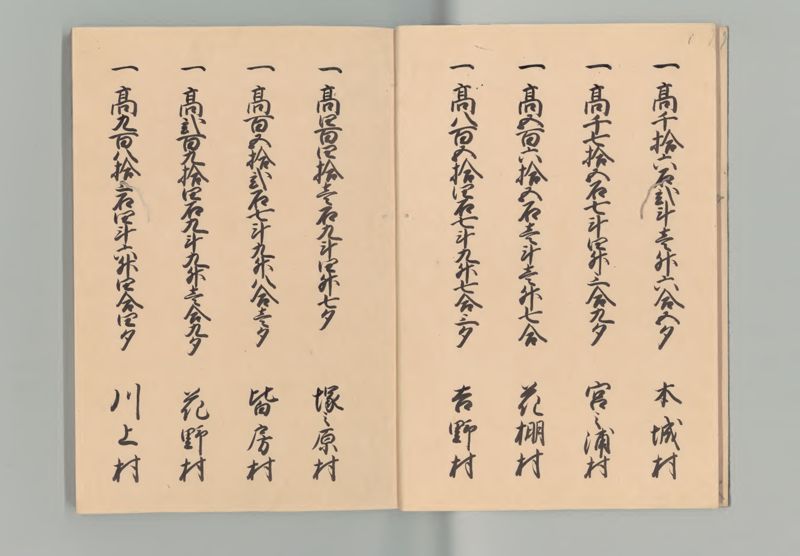 一 高千拾六石弐斗壱升六合五夕 本城村
一 高千七拾五石七斗四升三合九夕 宮之浦村
一 高五百六拾五石壱斗壱升七合 花棚村
一 高八百五拾四石七斗九升七合三夕 吉野村
一 高四百四拾壱石九斗四升七夕 塚之原村
一 高百五拾弐石七斗九升八合壱夕 皆房村
一 高弐百九拾四石九斗九升壱合九夕 花野村
一 高九百八拾三石四斗六升四合四夕 川上村